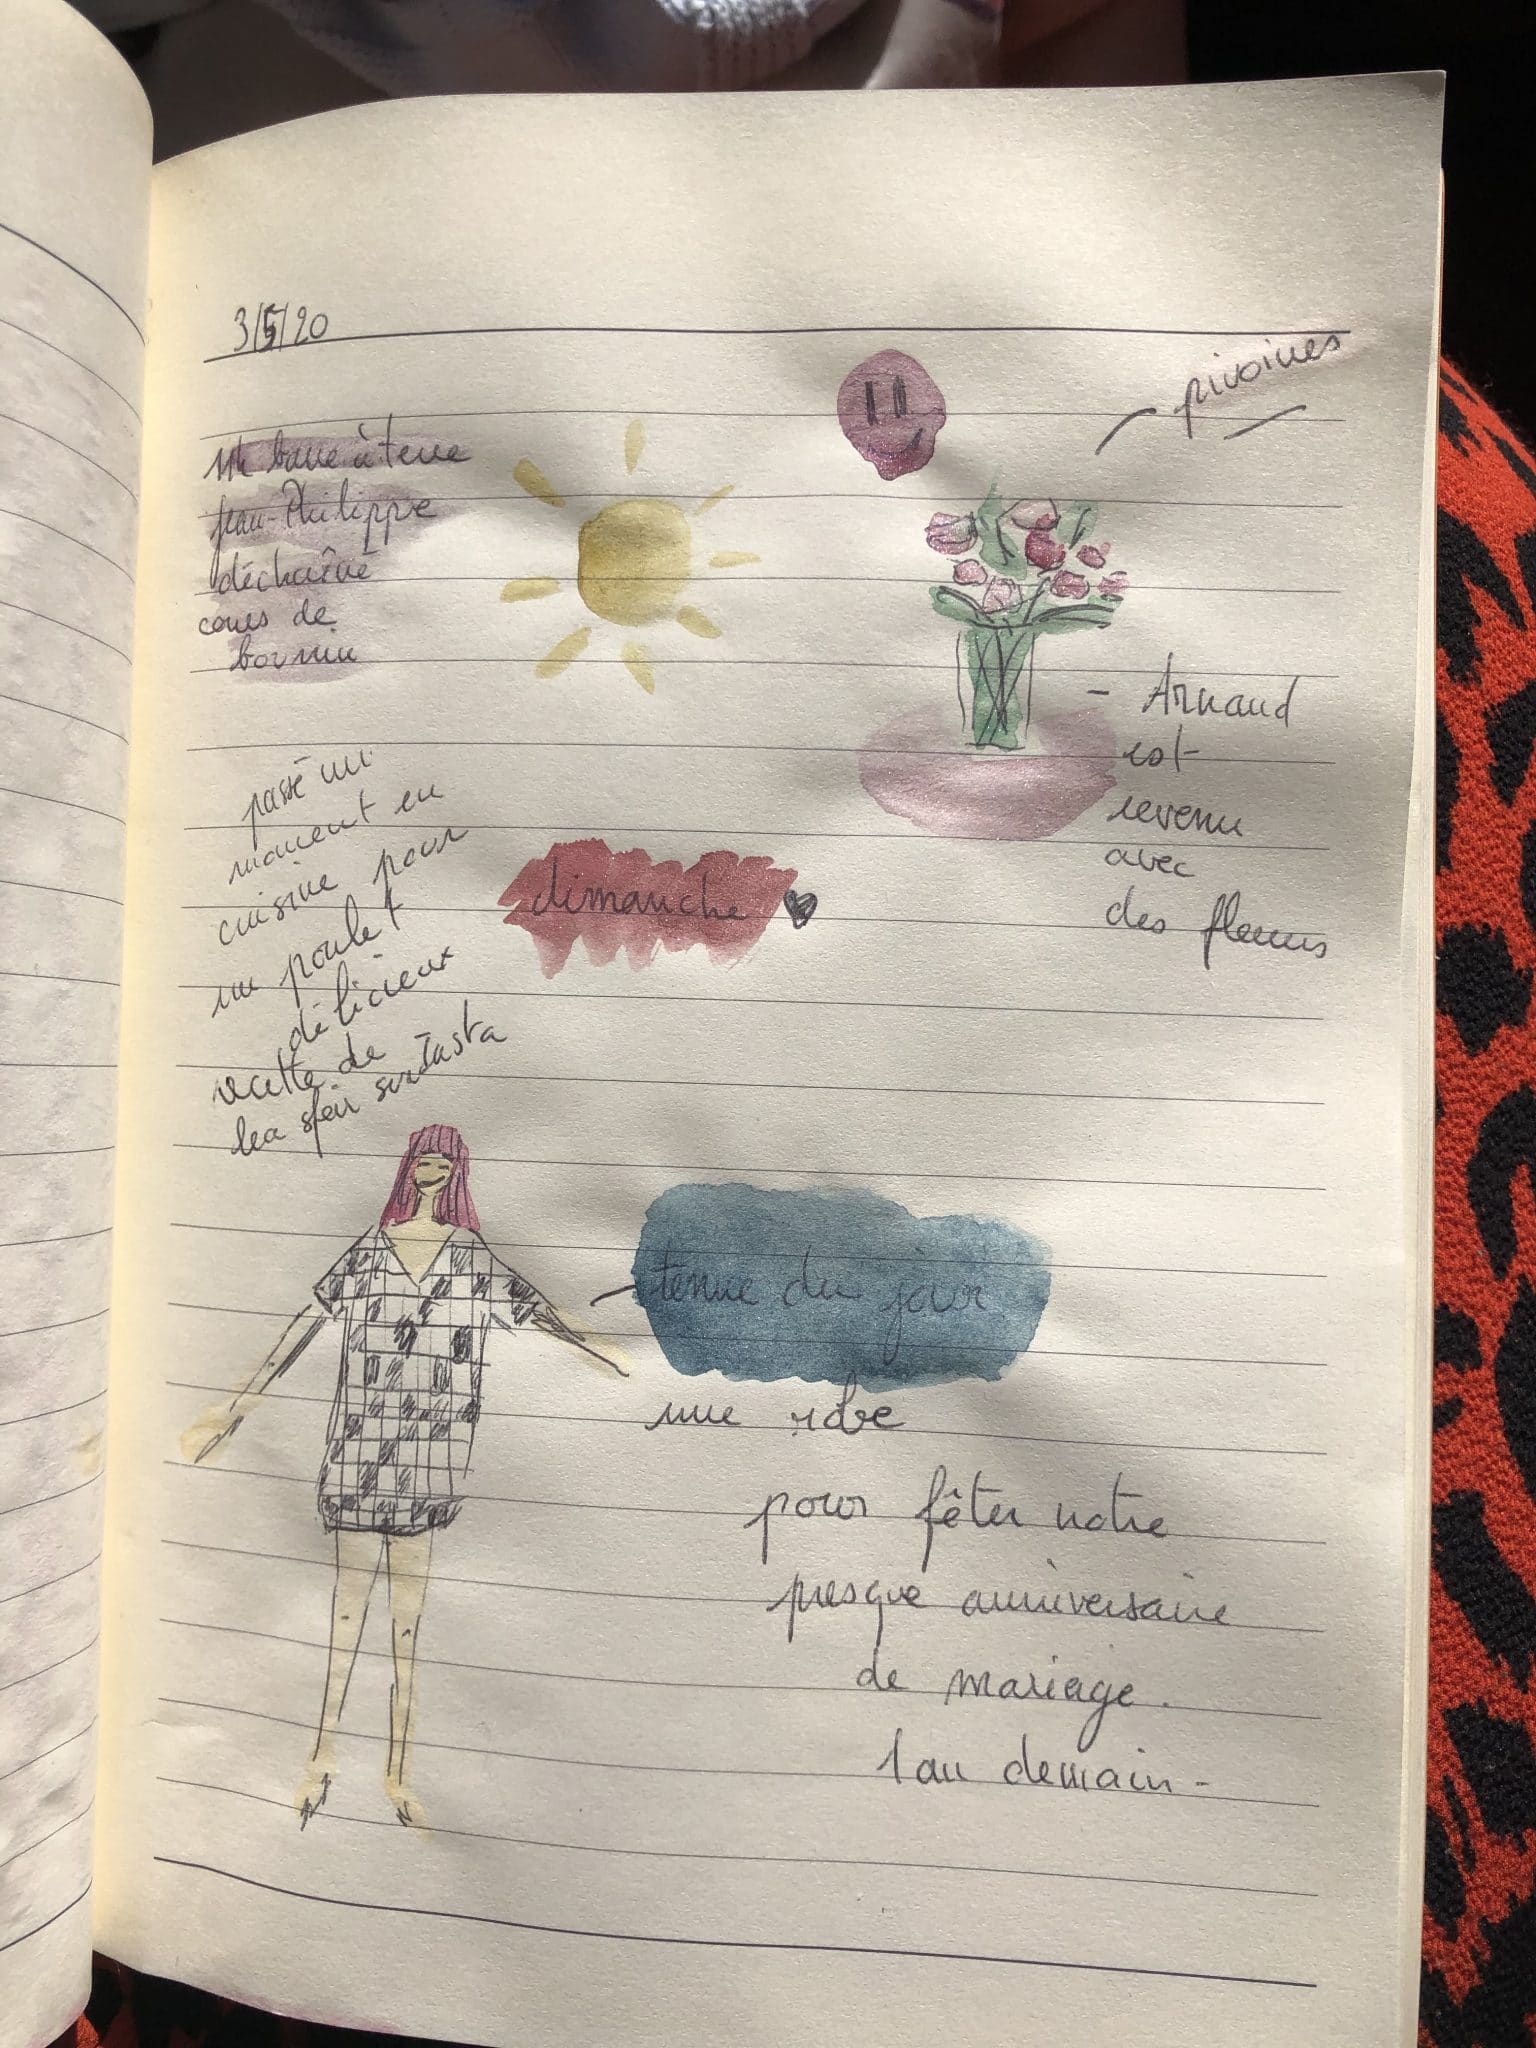 3/5/20
pivoines
1h barre à terre
Jean-Philippe
déchaîné
cours de
passé un
moment en
cuisine pour
un poulet
délicieux
recette de
lea sfeir sur Tasta
dimanche
- Arnaud
est
revenu
avec
des fleurs
tenue du jour
une robe
pour fêter notre
presque anniversaire
de mariage.
1 an demain -